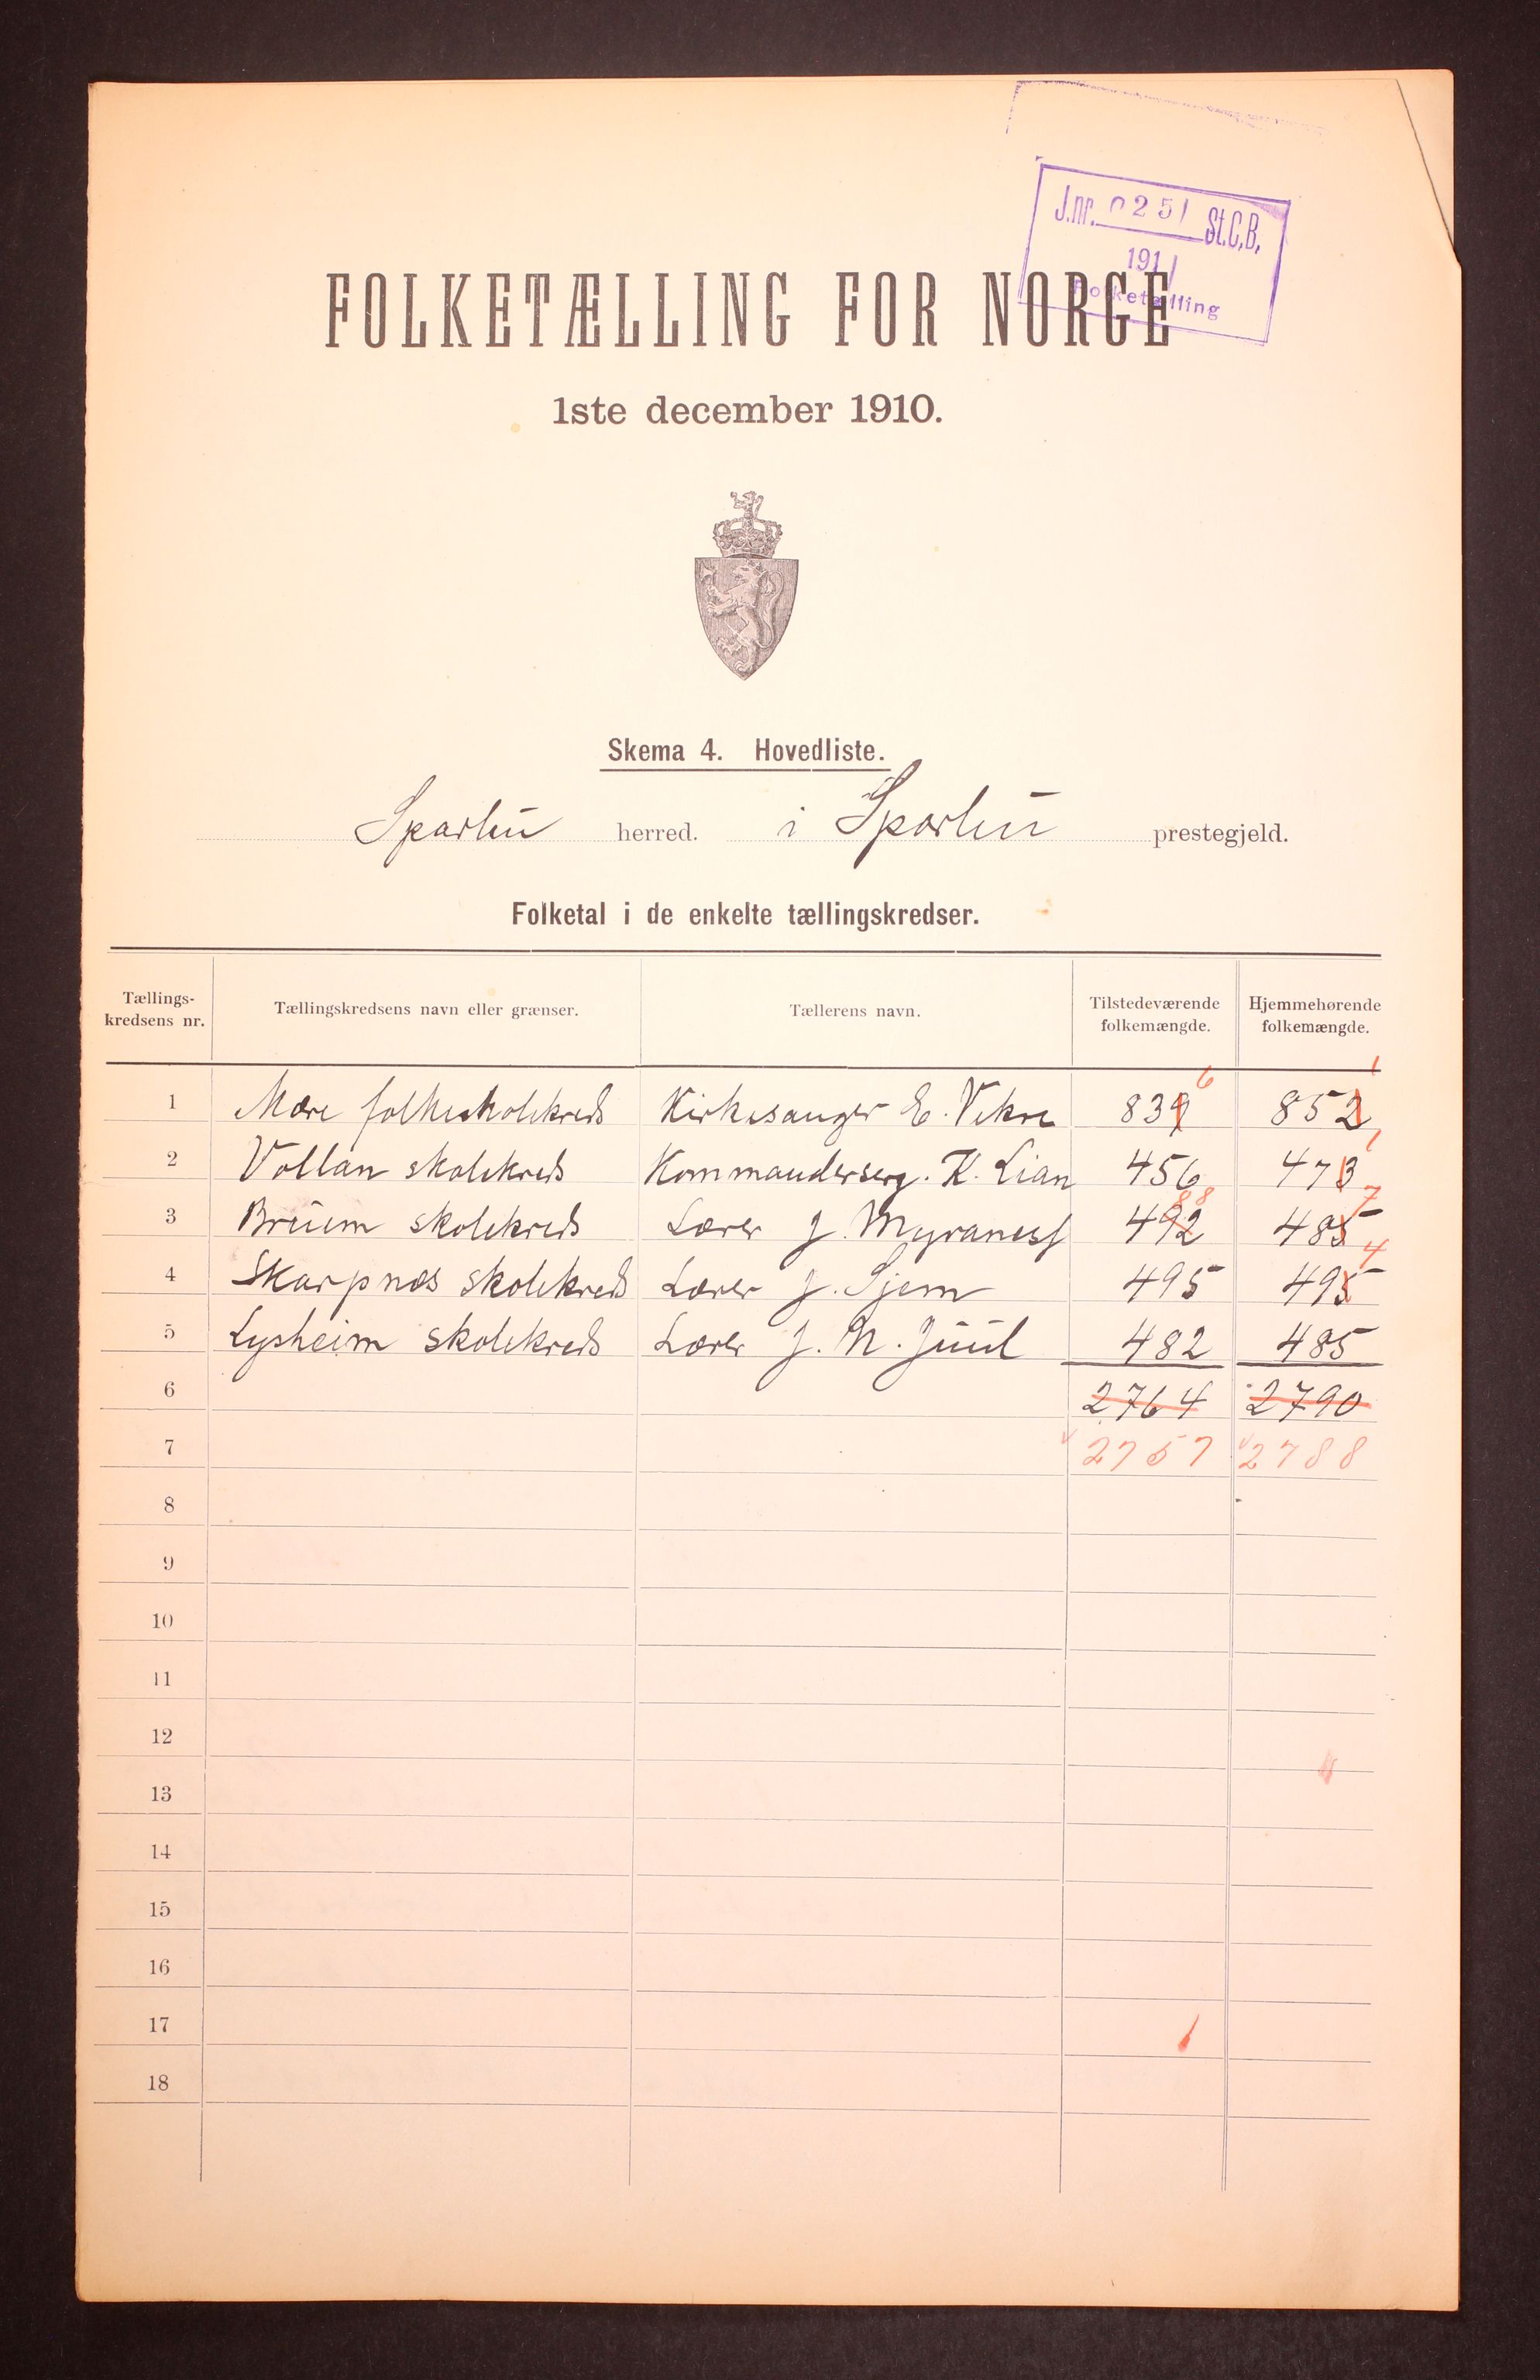 J.nr. 0251 St.C.B.
1911
Folketælling
FOLKETÆLLING FOR NORGE
1ste december 1910.
Skema 4. Hovedliste.
Sparbu herred. i Sparbu prestegjeld.
Folketal i de enkelte tællingskredser.
Tællings-kredsens nr. Tællingskredsens navn eller grænser. Tællerens navn. Tilstedeværende folkemængde. Hjemmehørende folkemængde.
6 1
1 Mære folkeskolekreds Kirkesanger E. Vekre 839 852
1
2 Vollan skolekreds Kommanderserg. K. Lian 456 473
88 7
3 Bruem skolekreds Lærer J. Myranesf 492 485
4
4 Skarpnes skolekreds Lærer J. Sjem 495 495
5 Lysheim skolekreds Lærer J. N. Juul 482 485
6 2764 2790
7 2757 2788
8
9
10
11
12
13
14
15
16
17
18